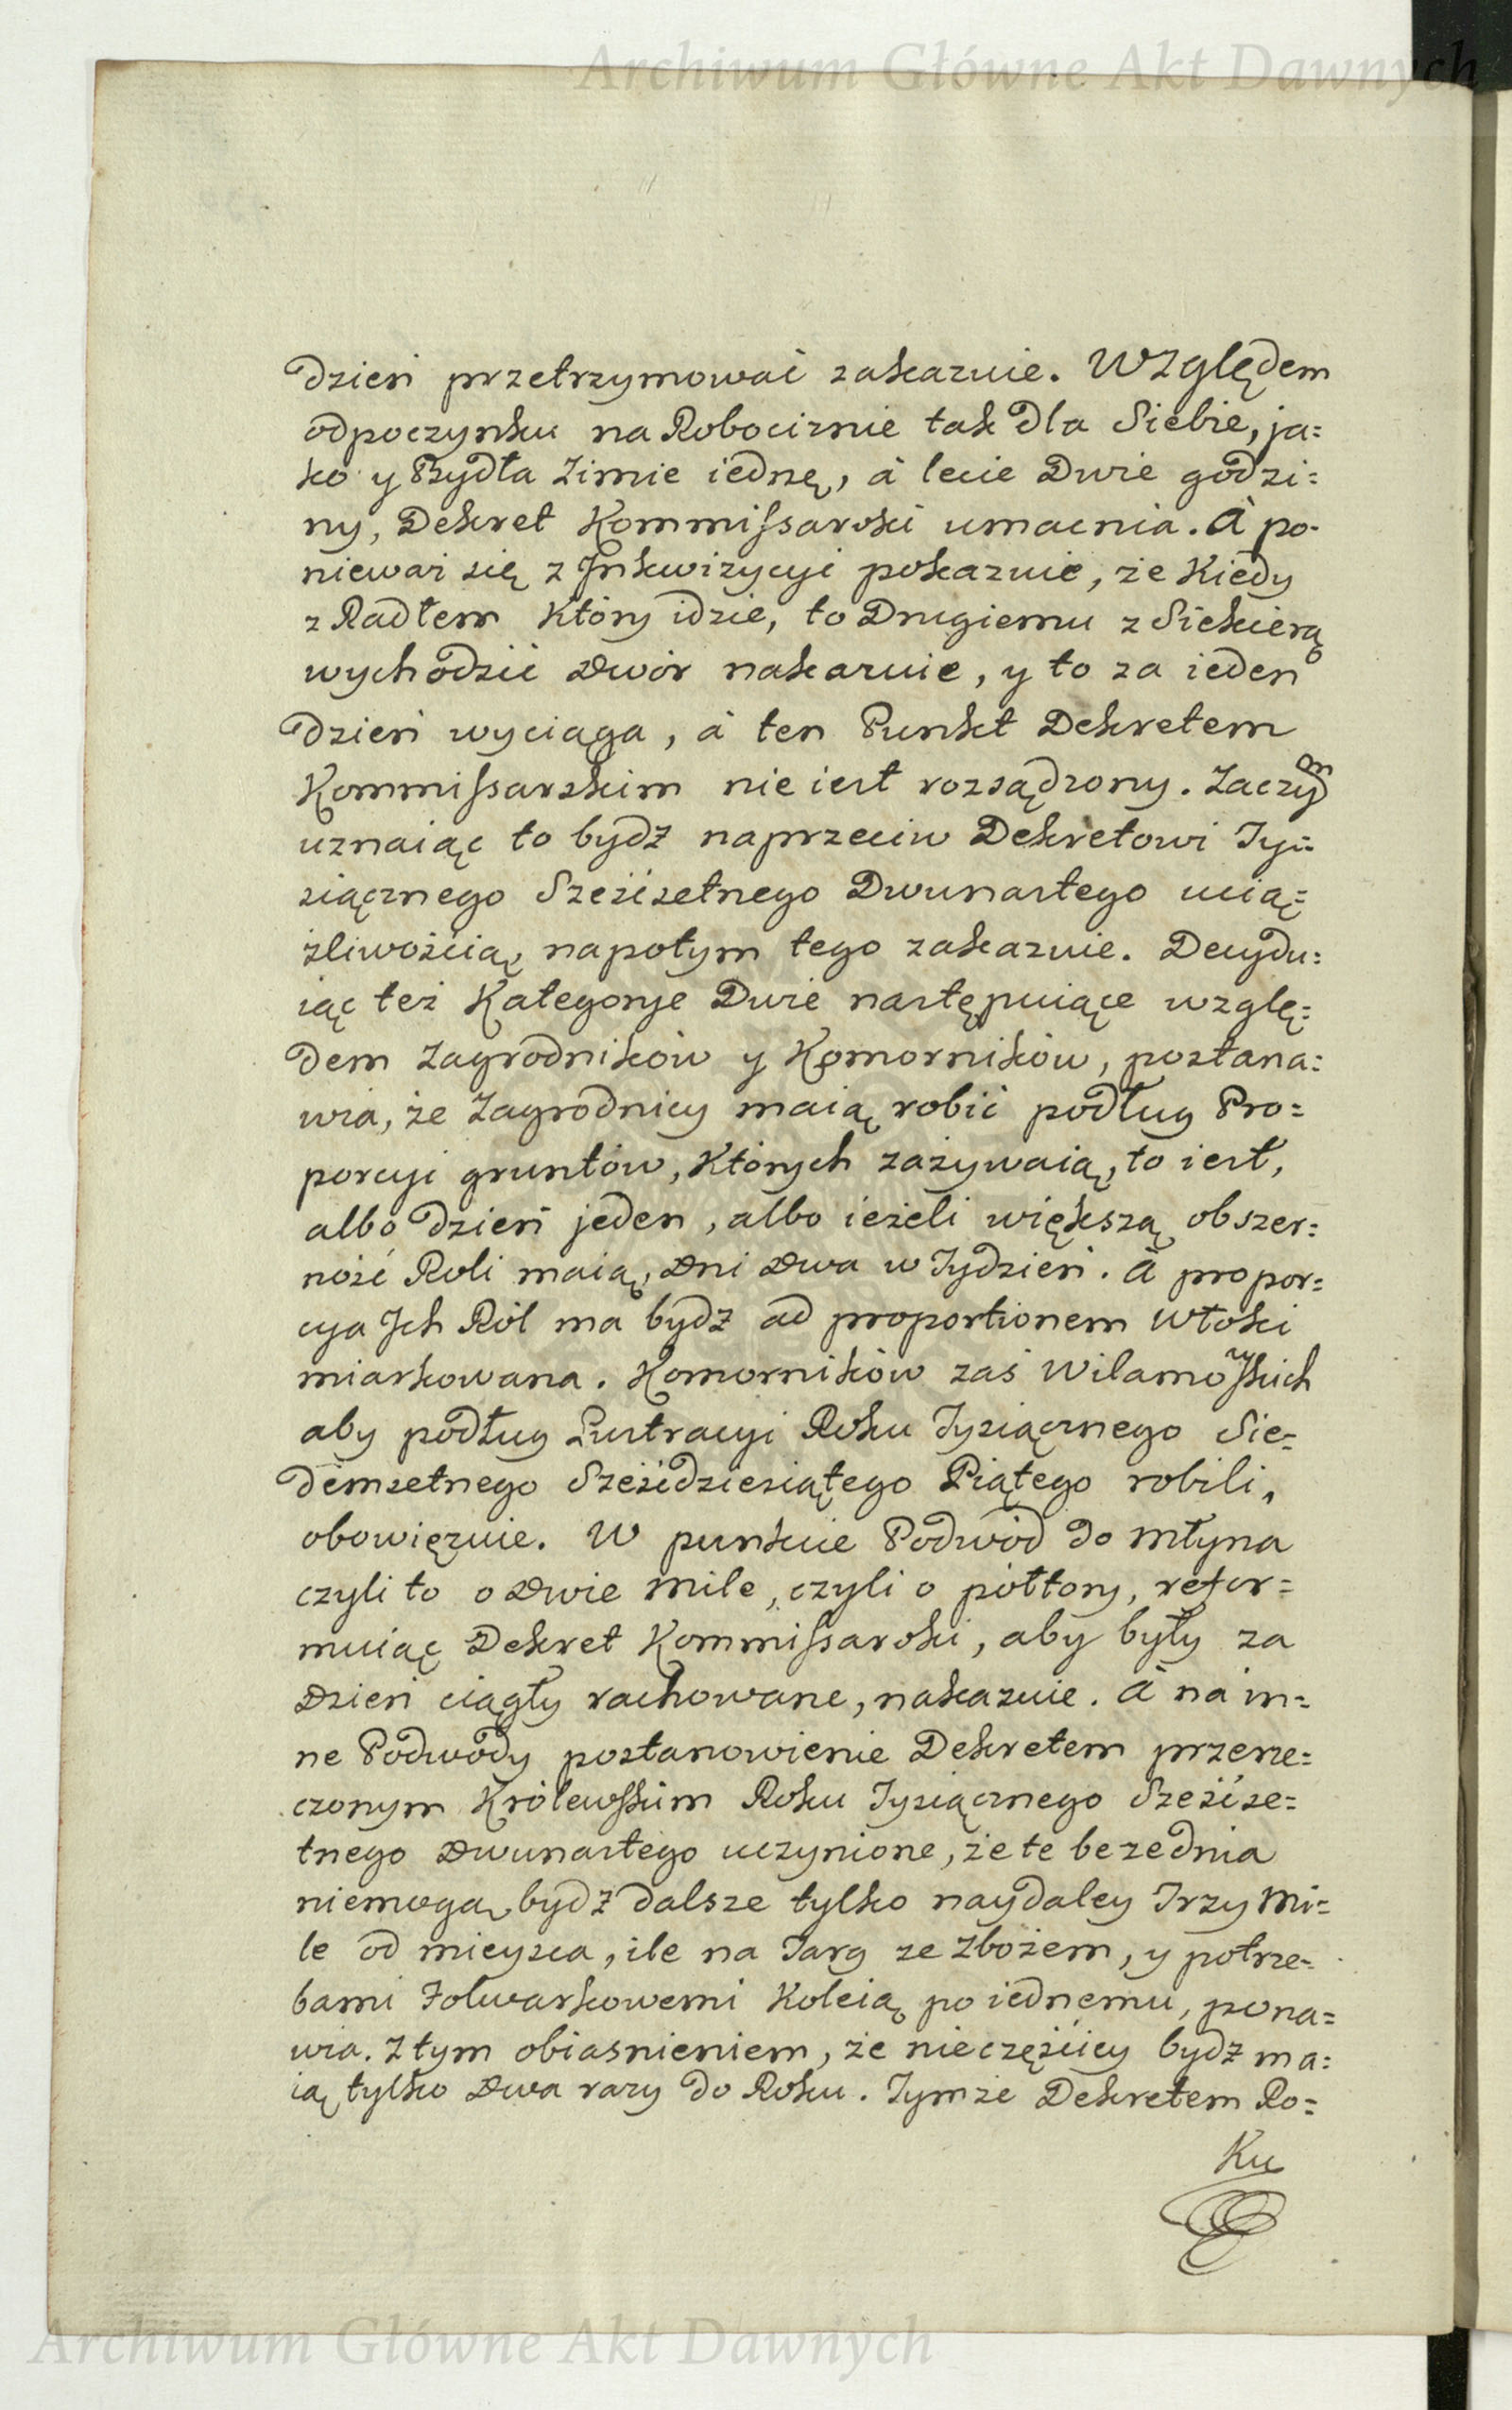 Archiwum Główne Akt Dawnych
dzień przetrzymować zakazuie. Względem
odpoczynku na Robociznie tak dla Siebie, ja=
ko y Bydła Zimie iednę, à lecie Dwie godzi=
ny, Dekret Kommissarski umacnia. à po=
nieważ się z Jnkwizycyi pokazuie, że Kiedy
z Radłem Który idzie, to Drugiemu z Siekierą
wychodzić Dwór nakazuie, y to za ieden
dzień wyciąga, à ten Punkt Dekretem
Kommissarskim nie iest rozsądzony. Zaczym
uznaiąc to bydz naprzeciw Dekretowi Ty=
siącznego Sześćsetnego Dwunastego ucią=
żliwością, napotym tego zakazuie. Decydu=
iąc też Kategorye Dwie następuiące wzglę=
dem Zagrodników y Komorników, postana=
wia, że Zagrodnicy maią robić podług Pro=
porcyi gruntów, Których zażywaią, to iest,
albo dzień jeden, albo ieżeli większą obszer=
ność Roli maią, Dni Dwa w Tydzień. à propor=
cya Jch Ról ma bydz ad proportionem Włoki
miarkowana. Komorników zaś Wilamowskich
aby podług Lustracyi Roku Tysiącznego Sie=
demsetnego Sześćdziesiątego Piątego robili,
obowięzuie. W punkcie Podwód do Młyna
czyli to o Dwie Mile, czyli o półtory, refor=
muiąc Dekret Kommissarski, aby były za
Dzień ciągły rachowane, nakazuie. à na in=
ne Podwody postanowienie Dekretem przerze=
czonym Królewskim Roku Tysiącznego Sześćse=
tnego Dwunastego uczynione, że te bezednia
niemogą bydz dalsze tylko naydaley Trzy Mi=
le od mieysca, ile na Targ ze Zbożem, y potrze=
bami Folwarkowemi Koleią po iednemu, pona=
wia. Z tym obiasnieniem, że nieczęściey bydz ma=
ią tylko Dwa razy do Roku. Tymże Dekretem Ro=
Ku
Archiwum Główne Akt Dawnych